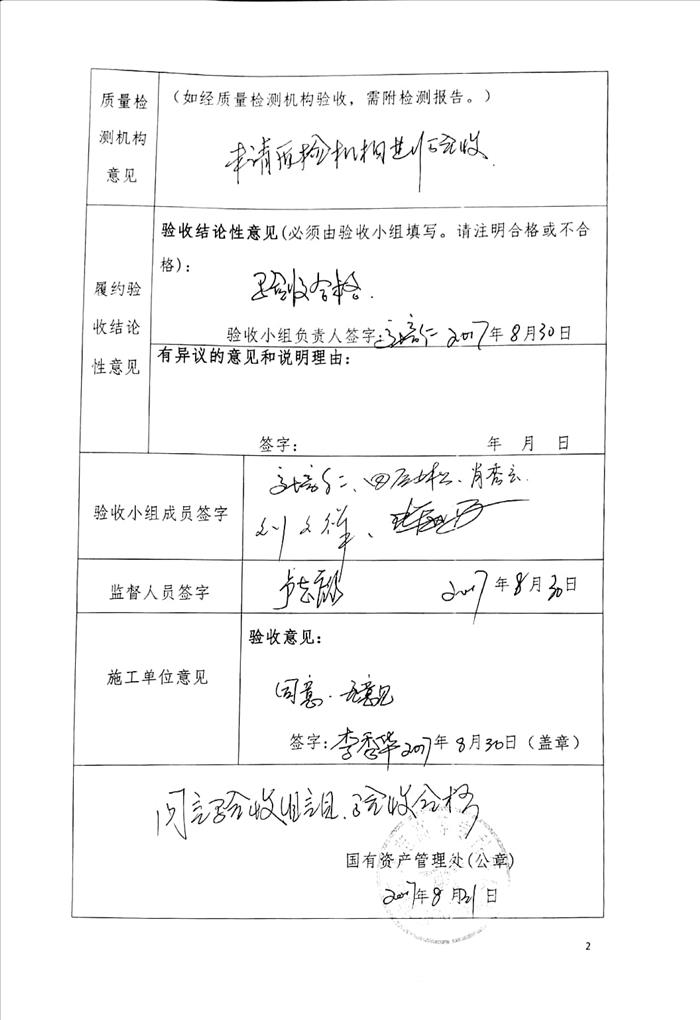 质量检
测机构
意见
(如经质量检测机构验收，需附检测报告。)
申请质检机构进行验收.
履约验
收结论
性意见
验收结论性意见(必须由验收小组填写。请注明合格或不合
格):
验收合格.
验收小组负责人签字: 2017年8月30日
有异议的意见和说明理由:
签字: 年 月 日
验收小组成员签字
肖秀云
监督人员签字
2017年8月30日
施工单位意见
验收意见:
同意.无意见
签字:李香华2017年8月30日(盖章)
同意验收 验收合格
国有资产管理处(公章)
2017年8月31日
2